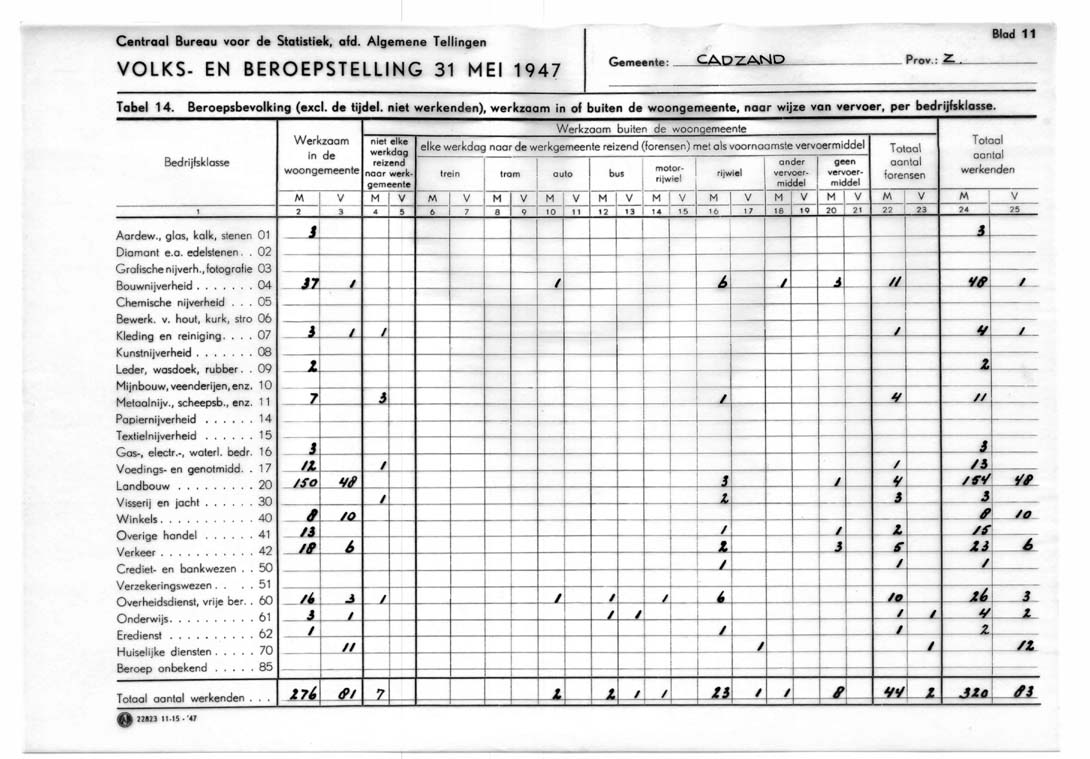 Centraal Bureau voor de Statistiek, afd. Algemene Tellingen
Blad 11
VOLKS- EN BEROEPSTELLING 31 MEI 1947
Gemeente: CADZAND Prov.: Z.
Tabel 14. Beroepsbevolking (excl. de tijdel. niet werkenden), werkzaam in of buiten de woongemeente, naar wijze van vervoer, per bedrijfsklasse.
Bedrijfsklasse
Werkzaam in de woongemeente
Werkzaam buiten de woongemeente
niet elke werkdag reizend naar werkgemeente
elke werkdag naar de werkgemeente reizend (forensen) met als voornaamste vervoermiddel
trein tram auto bus motor-rijwiel rijwiel ander vervoer-middel geen vervoer-middel
Totaal aantal forensen
Totaal aantal werkenden
M V M V M V M V M V M V M V M V M V M V M V M V
1 2 3 4 5 6 7 8 9 10 11 12 13 14 15 16 17 18 19 20 21 22 23 24 25
Aardew., glas, kalk, stenen 01 3 3
Diamant e.a. edelstenen . . 02
Grafische nijverh., fotografie 03
Bouwnijverheid . . . . . . . 04 37 1 1 6 1 3 11 48 1
Chemische nijverheid . . . 05
Bewerk. v. hout, kurk, stro 06
Kleding en reiniging. . . . 07 3 1 1 1 4 1
Kunstnijverheid . . . . . . . 08
Leder, wasdoek, rubber . . 09 2 2
Mijnbouw, veenderijen, enz. 10
Metaalnijv., scheepsb., enz. 11 7 3 1 4 11
Papiernijverheid . . . . . . 14
Textielnijverheid . . . . . . 15
Gas-, electr.-, waterl. bedr. 16 3 3
Voedings- en genotmidd. . 17 12 1 1 13
Landbouw . . . . . . . . . 20 150 48 3 1 4 154 48
Visserij en jacht . . . . . . 30 1 2 3 3
Winkels . . . . . . . . . . . 40 8 10 8 10
Overige handel . . . . . . 41 13 1 1 2 15
Verkeer . . . . . . . . . . . 42 18 6 2 3 5 23 6
Crediet- en bankwezen . . 50 1 1 1
Verzekeringswezen . . . . 51
Overheidsdienst, vrije ber. . 60 16 3 1 1 1 1 6 10 26 3
Onderwijs. . . . . . . . . . 61 3 1 1 1 1 1 4 2
Eredienst . . . . . . . . . . 62 1 1 1 2
Huiselijke diensten . . . . . 70 11 1 1 12
Beroep onbekend . . . . . 85
Totaal aantal werkenden . . . 276 81 7 2 2 1 1 23 1 1 8 44 2 320 83
22823 11-15 - '47